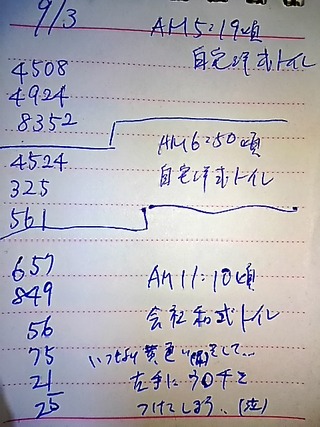 9/3
AM5:19頃
自宅洋式トイレ
4508
4924
8352
AM6:50頃
自宅洋式トイレ
4524
325
561
657
849
56
75
21
25
AM11:10頃
会社和式トイレ
いつもより黄色い
をして…
左手にウ〇チを
つけてしまう…(泣)